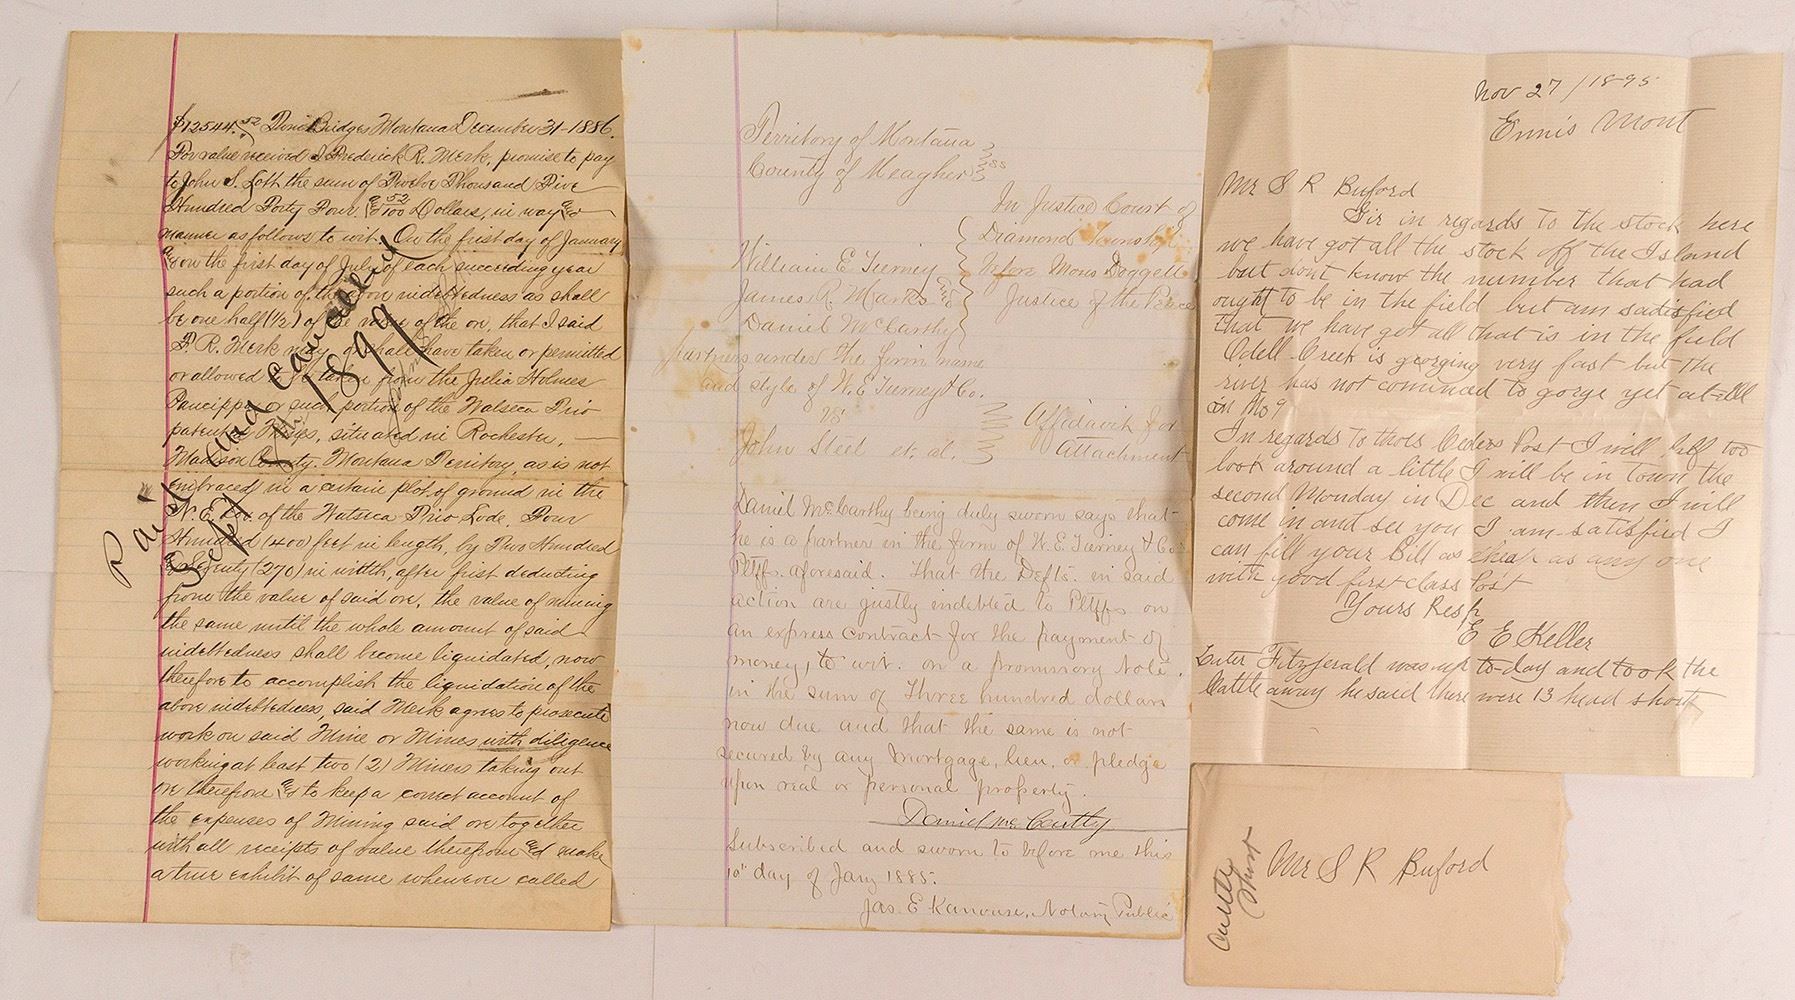 $12544.52 Twin Bridges Montana December 31-1886.
For value received I Frederick R. Merk, promise to pay
to John S. Loth the sum of Twelve Thousand Five
Hundred Forty Four & 52/100 Dollars, in way &
manner as follows to wit. On the first day of January
& on the first day of July of each succeeding year
such a portion of the above indebtedness as shall
be one half (1/2) of the value of the ore, that I said
F. R. Merk may or shall have taken or permitted
or allowed to be taken from the Julia Holmes
or such portion of the Watseca Trio
patented Mines, situated in Rochester,
Madison County, Montana Territory, as is not
embraced in a certain plot of ground in the
N. E. Cor. of the Watseca Trio Lode, Four
Hundred (400) feet in length, by Two Hundred
& Seventy (270) in width, after first deducting
from the value of said ore, the value of mining
the same until the whole amount of said
indebtedness shall become liquidated, now
therefore to accomplish the liquidation of the
above indebtedness, said Merk agrees to prosecute
work on said Mine or Mines with diligence
working at least two (2) Miners taking out
ore therefrom & to keep a correct account of
the expenses of Mining said ore together
with all receipts of value therefrom & make
a true exhibit of same whenever called
Paid and Cancelled
Sept 1899
Territory of Montana
County of Meagher ss
In Justice Court of
Diamond Township
before Mons Doggett
Justice of the Peace
William E Tierney
James R. Marks &
Daniel McCarthy
partners under the firm name
and style of W. E Tierney & Co.
vs
John Steel et. al.
Affidavit for
Attachment
Daniel McCarthy being duly sworn says that
he is a partner in the firm of W. E. Tierney & Co
Pltff. aforesaid. That the Defts. in said
action are justly indebted to Pltffs on
an express contract for the payment of
money, to wit: on a promissory note,
in the sum of three hundred dollars
now due and that the same is not
secured by any mortgage, lien, or pledge
upon real or personal property.
Daniel McCarthy
Subscribed and sworn to before me this
10" day of Jany 1885.
Jas. E Kanouse, Notary Public
Nov 27/1895
Ennis Mont
Mr S R Buford
Sir in regards to the stock here
we have got all the stock off the Island
but dont know the number that had
ought to be in the field but am sadisfied
that we have got all that is in the field
Odell Creek is gorging very fast but the
river has not comincd to gorge yet at all
In regards to thoes Ceders Post I will half too
look around a little I will be in town the
second Monday in Dec and then I will
come in and see you I am satisfied I
can fill your Bill as cheap as any one
with good first class Post
Yours Resp
E E Keller
Luter Fitzgerald was up to-day and took the
Cattle away he said there were 13 head short
Mr S R Buford
Cattle
Short